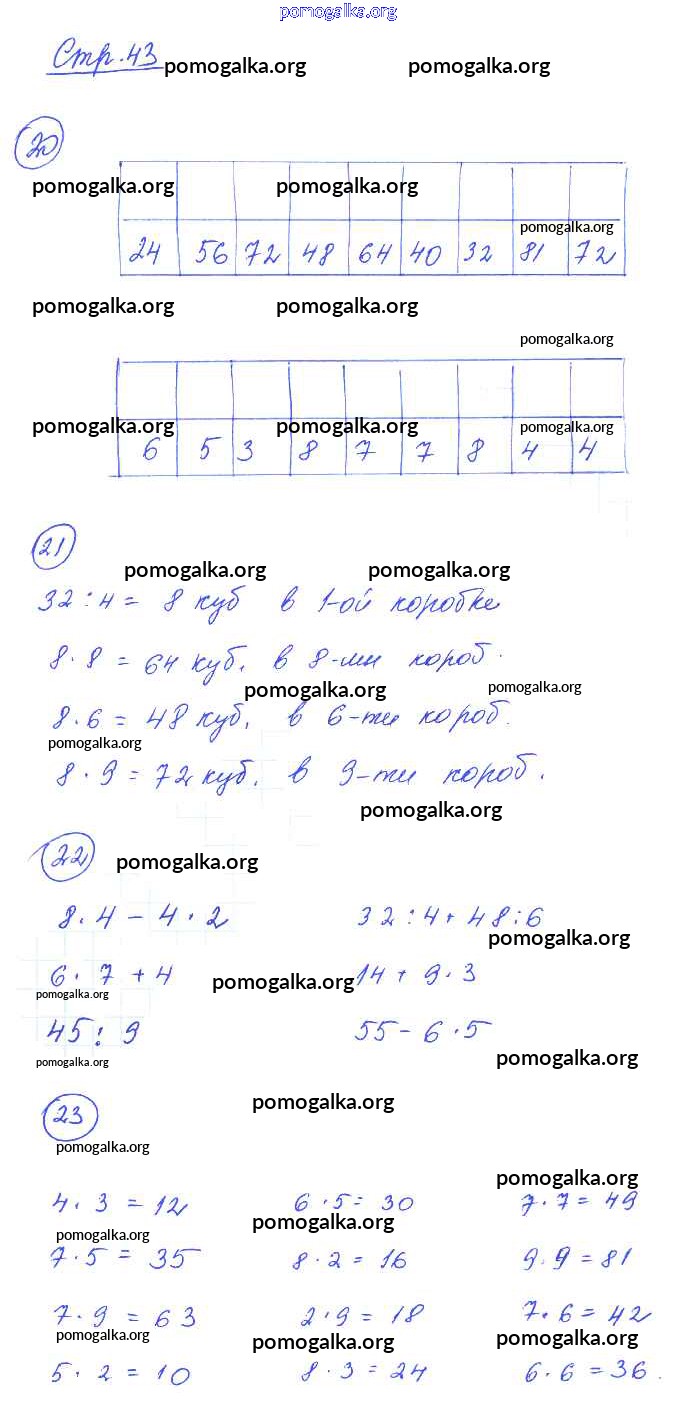 pomogalka.org
Стр. 43 pomogalka.org pomogalka.org
20
pomogalka.org pomogalka.org
pomogalka.org
24 56 72 48 64 40 32 81 72
pomogalka.org pomogalka.org
pomogalka.org
pomogalka.org pomogalka.org pomogalka.org
6 5 3 8 7 7 8 4 4
21
pomogalka.org pomogalka.org
32 : 4 = 8 куб в 1-ой коробке
8 · 8 = 64 куб. в 8-ми короб.
pomogalka.org pomogalka.org
8 · 6 = 48 куб. в 6-ти короб.
pomogalka.org
8 · 9 = 72 куб. в 9-ти короб.
pomogalka.org
22 pomogalka.org
8 · 4 - 4 · 2 32 : 4 + 48 : 6
pomogalka.org
6 · 7 + 4 pomogalka.org 14 + 9 · 3
pomogalka.org
45 : 9 55 - 6 · 5
pomogalka.org pomogalka.org
23 pomogalka.org
pomogalka.org
pomogalka.org
4 · 3 = 12 6 · 5 = 30 7 · 7 = 49
pomogalka.org pomogalka.org
7 · 5 = 35 8 · 2 = 16 9 · 9 = 81
7 · 9 = 63 2 · 9 = 18 7 · 6 = 42
pomogalka.org pomogalka.org pomogalka.org
5 · 2 = 10 8 · 3 = 24 6 · 6 = 36.